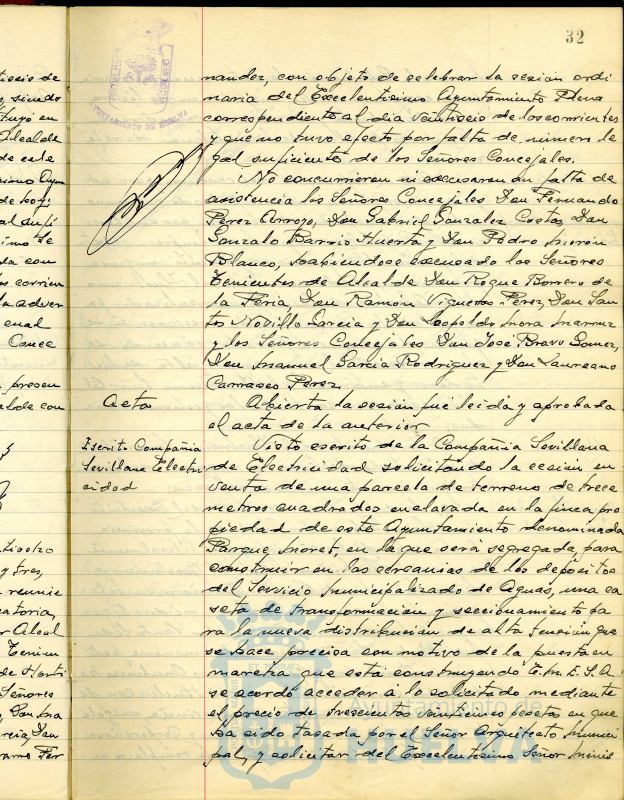 32
nandez, con objeto de celebrar la sesión ordi
naria del Excelentísimo Ayuntamiento Pleno
correspondiente al día veintiseis de los corrientes
y que no tuvo efecto por falta de número le
gal suficiente de los Señores Concejales.
No concurrieron ni excusaron su falta de
asistencia los Señores Concejales Don Fernando
Pérez Arroyo, Don Gabriel Gonzalez Costas, Don
Gonzalo Barrio Huerta y Don Pedro Morón
Blanco, habiéndose excusado los Señores
Tenientes de Alcalde Don Roque Borrero de
la Feria, Don Ramón Vigueras Pérez, Don San
tos Novillo García y Don Leopoldo Mora
y los Señores Concejales Don José Bravo Gomez,
Don Manuel García Rodriguez y Don Laureano
Carrasco Pérez.
Acta
Abierta la sesión fué leida y aprobada
el acta de la anterior
Escrito Compañia
Sevillana Electri
cidad
Visto escrito de la Compañia Sevillana
de Electricidad solicitando la cesión en
venta de una parcela de terreno de trece
metros cuadrados enclavada en la finca pro
piedad de este Ayuntamiento denominada
Parque Moret, en la que será segregada, para
construir en las cercanias de los depósitos
del Servicio Municipalizado de Aguas, una ca
seta de transformación y seccionamiento pa
ra la nueva distribución de alta tensión que
se hace precisa con motivo de la puesta en
marcha que está construyendo E.N.E.S.A.
se acordó acceder á lo solicitado mediante
el precio de trescientas veinticinco pesetas en que
ha sido tasada por el Señor Arquitecto Munici
pal, y solicitar del Excelentísimo Señor Minis
Ayuntamiento de
HUELVA